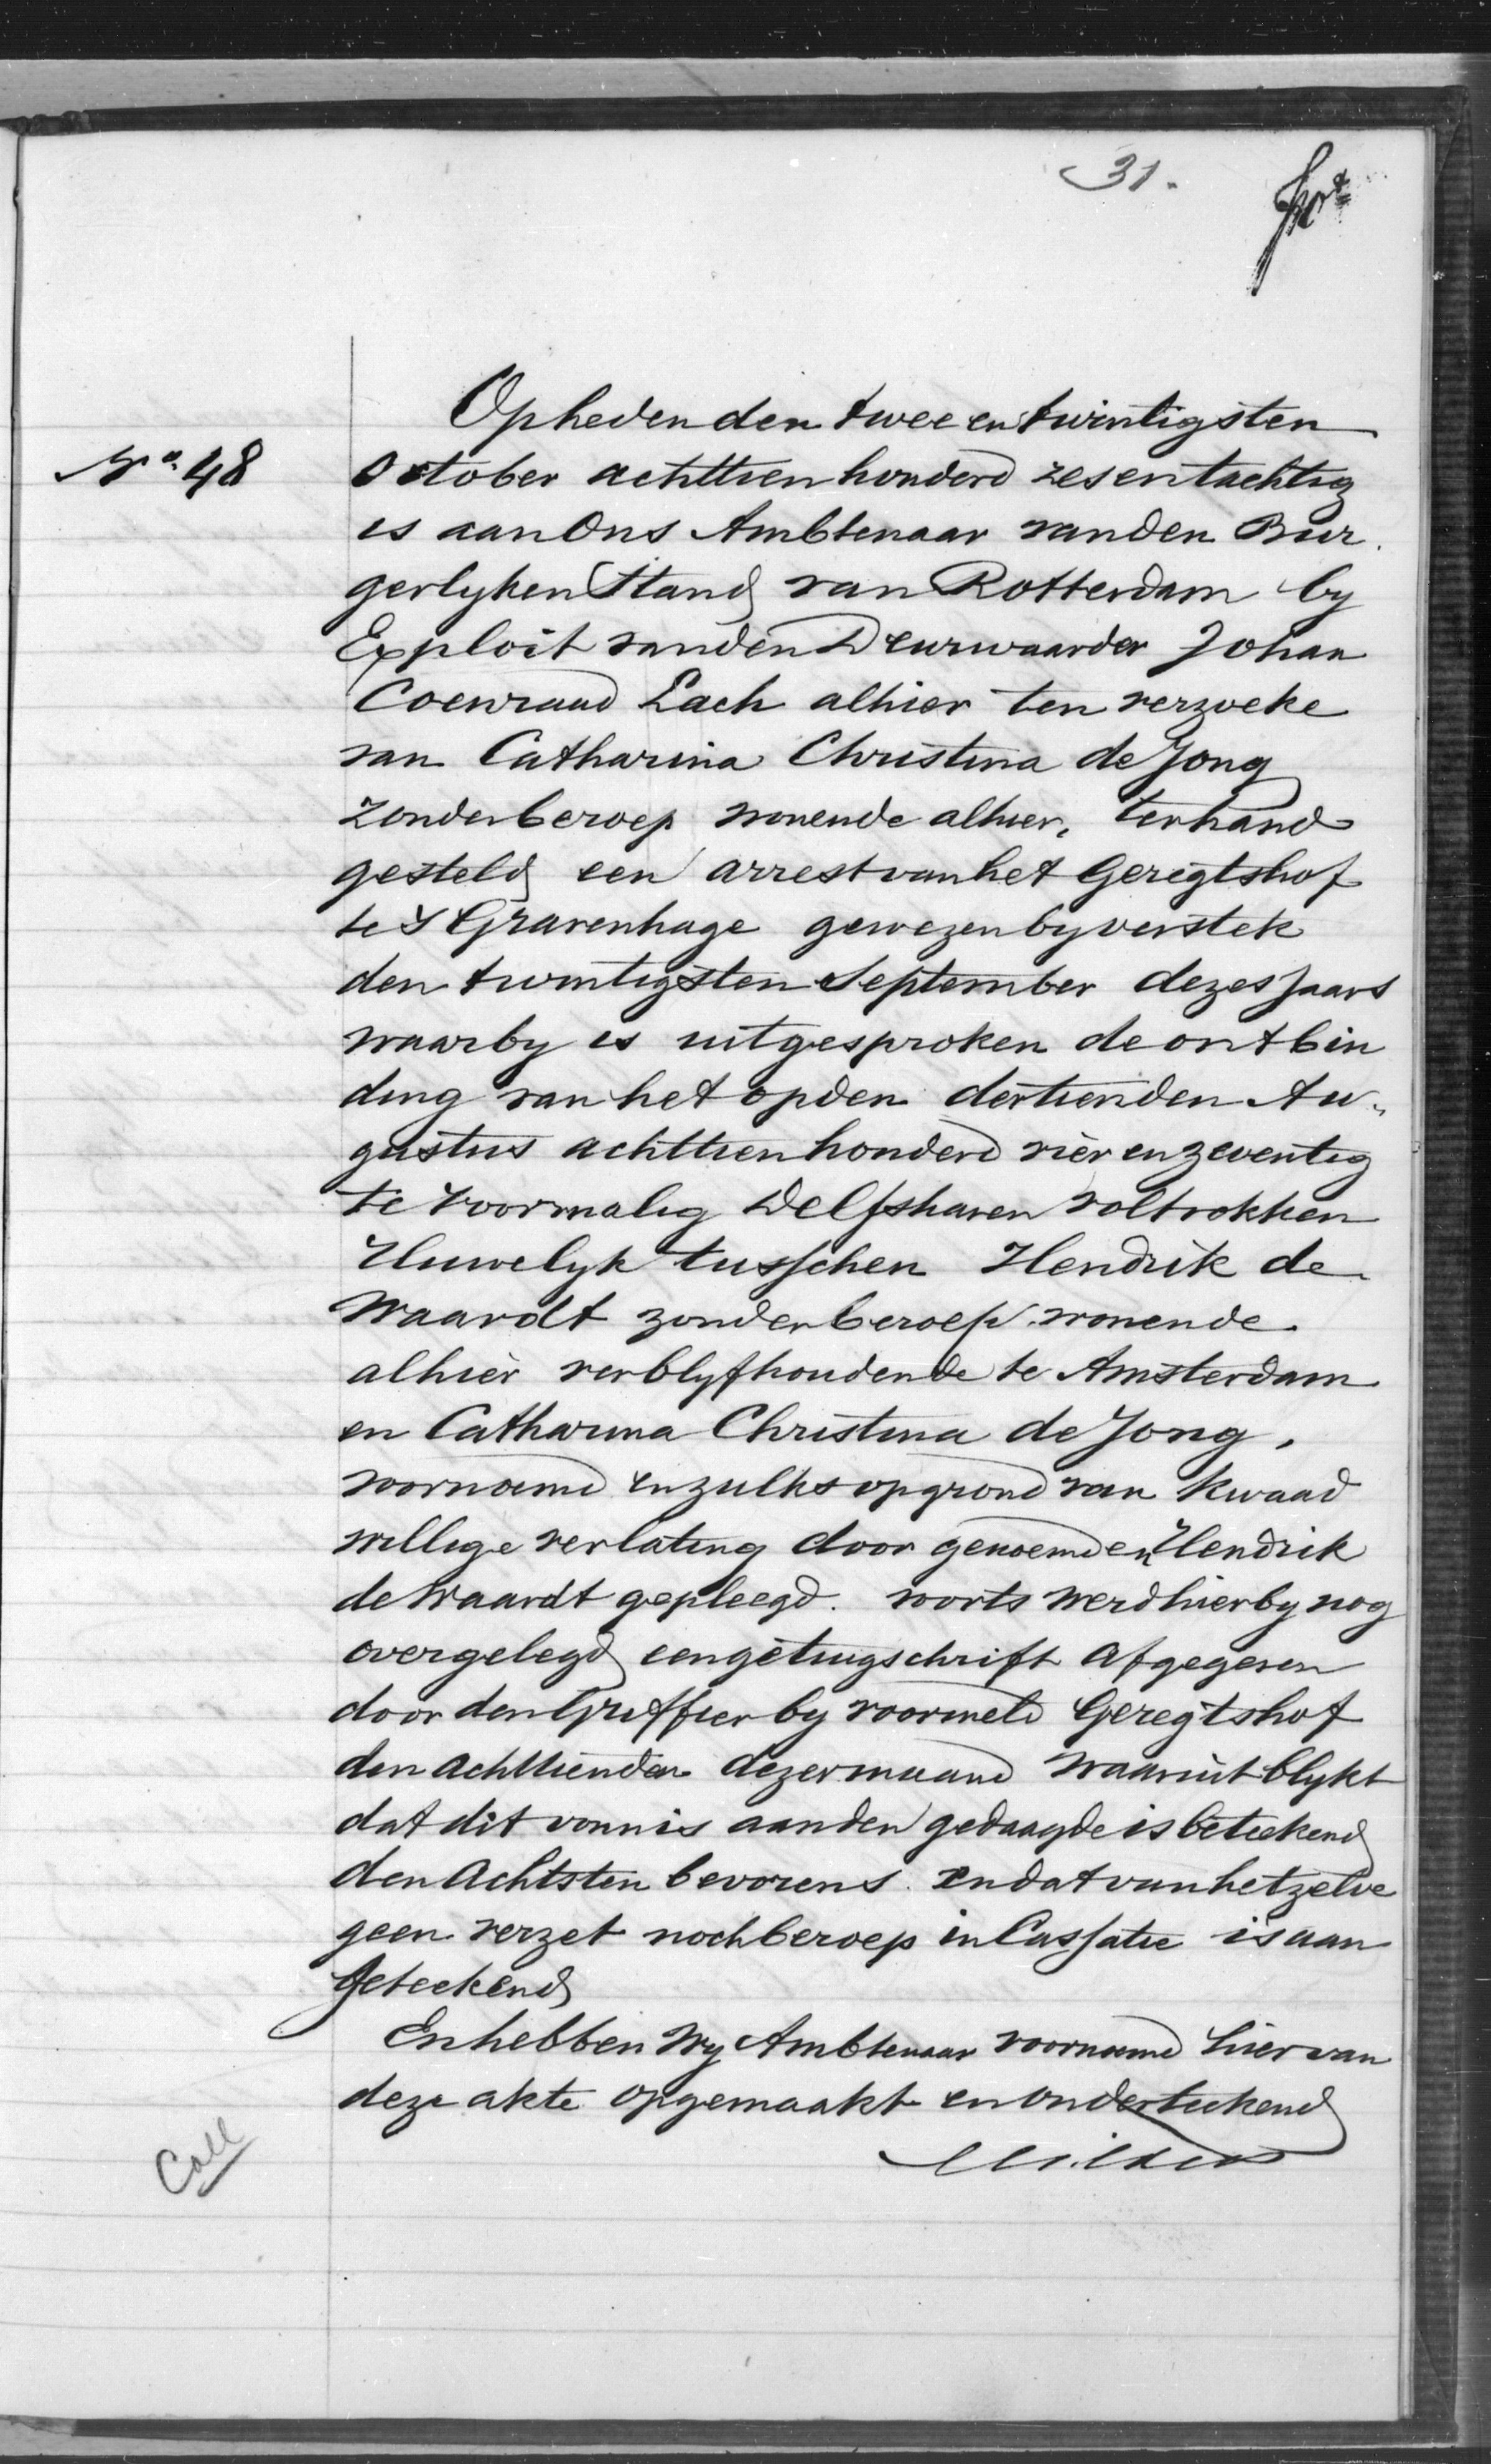 31.
Op heden den twee en twintigsten
No. 48
October achttien honderd zes en tachtig
is aan Ons Ambtenaar van den Bur
gerlyken Stand van Rotterdam by
Exploit van den Deurwaarder Johan
Coenraad Lach alhier ten verzoeke
van Catharina Christina de Jong
zonder beroep wonende alhier, terhand
gesteld een arrest van het Geregtshof
te s Gravenhage gewezen by verstek
den twintigsten September dezes jaars
waarby is uitgesproken de ontbin
ding van het op den dertienden Au„
gustus achttien honderd vier en zeventig
te voormalig Delfshaven voltrokken
Huwelyk tusschen Hendrik de
Waardt zonder beroep wonende
alhier verblyfhoudende te Amsterdam
en Catharina Christina de Jong,
voornoemd en zulks op grond van kwaad
willige verlating door genoemden Hendrik
de Waardt gepleegd. voorts werd hierby nog
overgelegd een getuigschrift afgegeven
door den Griffier by voormeld Geregtshof
den achttienden dezer maand waaruit blykt
dat dit vonnis aan den gedaagde is beteekend
den achtsten bevorens en dat van hetzelve
geen verzet noch beroep in Cassatie is aan
geteekend
En hebben Wy Ambtenaar voornoemd hiervan
deze akte opgemaakt en onderteekend
Coll